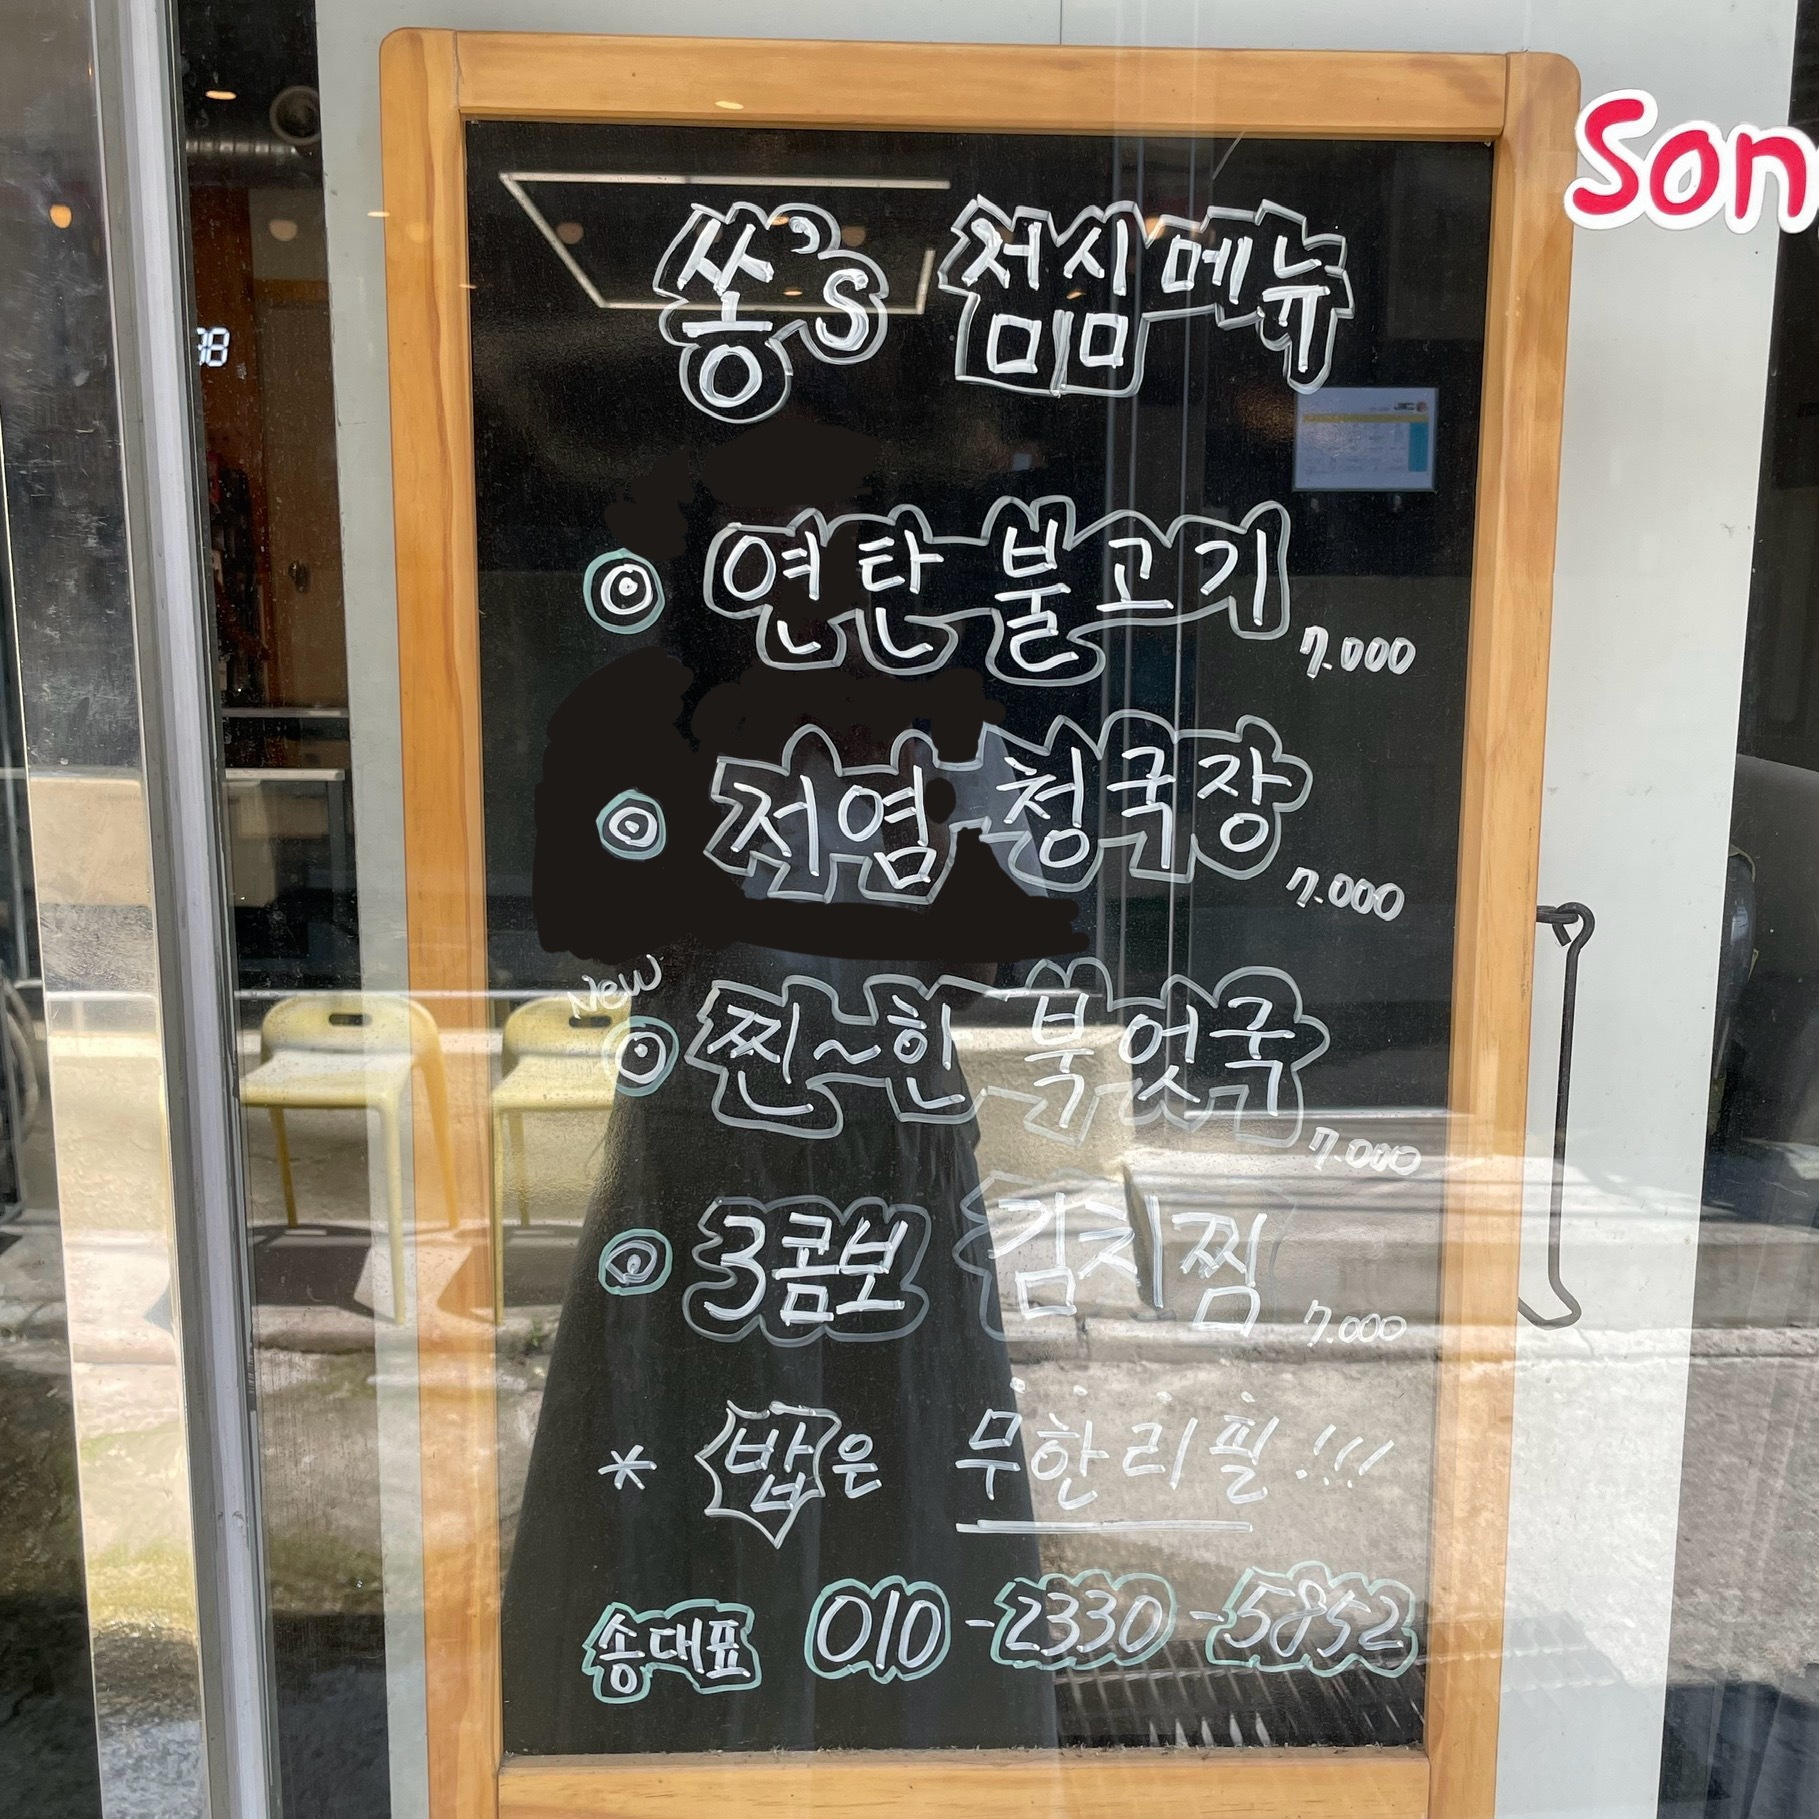 쏭's 점심메뉴
Son
연탄 불고기 7.000
저염 청국장 7.000
New
찐~한 북엇국 7.000
3콤보 김치찜 7.000
* 밥은 무한리필!!!
송대표 010-2330-5852